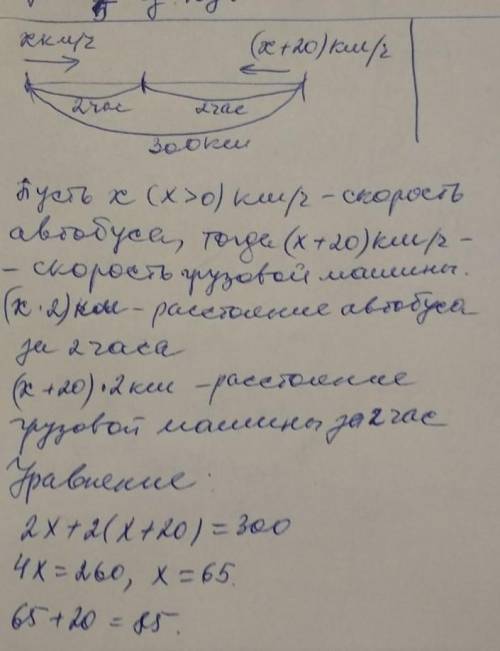 x км/ч
(x+20) км/ч
2 час
2 час
300 км
Пусть x (x>0) км/ч - скорость
автобуса, тогда (x+20) км/ч -
- скорость грузовой машины.
(x · 2) км - расстояние автобуса
за 2 часа
(x+20) · 2 км - расстояние
грузовой машины за 2 час
Уравнение:
2x+2(x+20)=300
4x=260, x=65.
65+20=85.